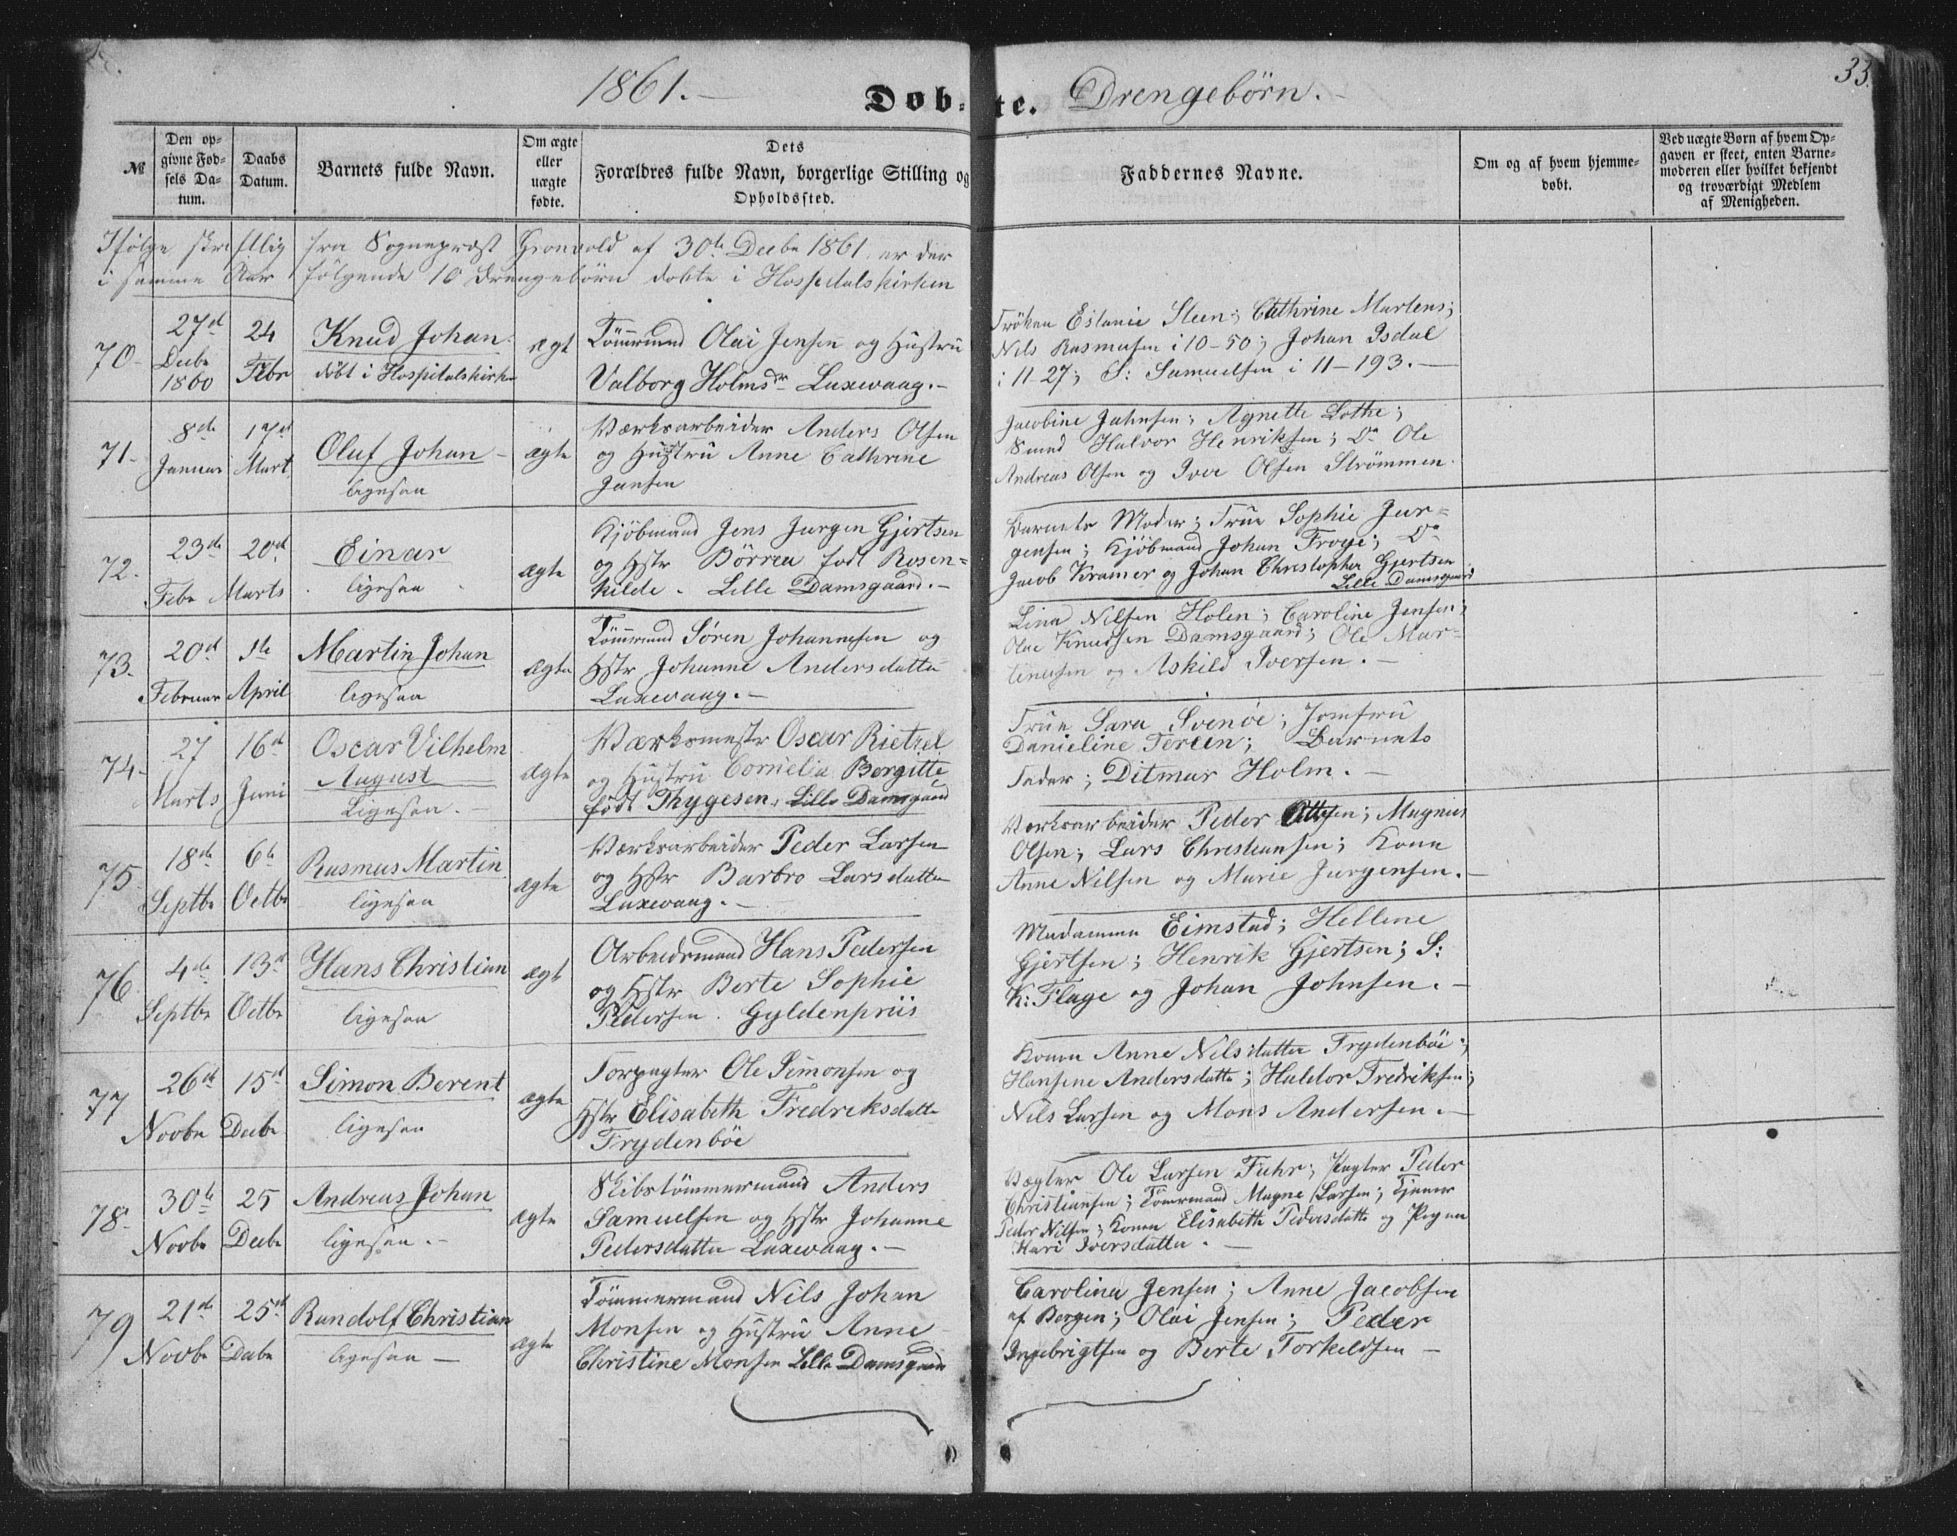 1861. Døb-te. Drengebørn. 33.
№
Den op-
givne Fød-
sels Da-
tum.
Daabs
Datum.
Barnets fulde Navn.
Om ægte
eller
uægte
fødte.
Dets
Forældres fulde Navn, borgerlige Stilling og
Opholdssted.
Faddernes Navne.
Om og af hvem hjemme-
døbt.
Ved uægte Børn af hvem Op-
gaven er skeet, enten Barne-
moderen eller hvilket bekjendt
og troværdigt Medlem
af Menigheden.
Ifølge skriftlig fra Sognepræst Gronvold af 30te Decbr 1861 er der
i samme Aar følgende 10 Drengebørn døbte i Hospitalskirken
70.
27de
Decbr
1860
24
Febr
Knud Johan
døbt i Hospitalskirken
ægt
Tømrmand Olai Jensen og Hustru
Valborg Holmsdr Laxevaag.
Frøken Estanie Steen; Cathrine Martens;
Nils Rasmusen i 10-50; Johan Isdal
i 11-27; S: Samuelsen i 11-193.
71.
8de
Januar
17de
Mart
Oluf Johan
ligesaa
ægte
Værksarbeider Anders Olsen
og Hustru Anne Cathrine
Jansen
Jacobine Jahnsen; Agnette Lothe;
Smed Halvor Henriksen; Do Ole
Andreas Olsen og Iver Olsen Strømmen
72.
23de
Febr
20de
Marts
Einar
ligesaa
ægte
Kjøbmand Jens Jurgen Gjertsen
og Hstr Børrea født Rosen=
kilde. Lille Damsgaard.
Barnets Moder; Frue Sophie Jur=
gensen; Kjøbmand Johan Troye; Do
Jacob Kramer og Johan Christopher Gjertsen
Lille Damsgaard
73.
20de
Februar
1te
April
Martin Johan
ligesaa
ægte
Tømrmand Søren Johannesen og
Hstr Johanne Andersdatter
Laxevaag.
Lina Nilsen Holen; Caroline Jensen;
Olae Knudsen Damsgaard; Ole Mar=
tinusen og Askild Iversen.
74.
27
Marts
16de
Juni
Oscar Vilhelm
August
Ligesaa.
ægte
Værksmestr Oscar Rietzel
og Hustru Cornelia Bergitte
født Thygesen. Lille Damsgaard
Frue Sara Svenøe; Jomfru
Danieline Tereen; Barnets
Fader; Ditmar Holm.
75.
18de
Septbr
6te
Octbr
Rasmus Martin
ligesaa
ægte
Værksarbeider Peder Larsen
og Hstr Barbro Larsdatter
Laxevaag.
Værksarbeider Peder Ottesen; Magnus
Olsen; Lars Christiansen; Kone
Anne Nilsen og Marie Jurgensen.
76
4de
Septbr
13de
Octbr
Hans Christian
ligesaa
ægt
Arbeidsmand Hans Pedersen
og Hstr Berte Sophie
Pedersen. Gyldenpriis
Madamme Eimstad; Hellene
Gjertsen; Henrik Gjertsen; S:
K: Flage og Johan Johnsen.
77
26de
Novbr
15de
Decbr
Simon Berent
ligesaa
ægte
Forpagter Ole Simonsen og
Hstr Elisabeth Fredriksdatter
Frydenbøe
Konen Anne Nilsdatter Frydenbøe;
Hansine Andersdatter; Haldor Fredriksen;
Nils Larsen og Mons Andersen.
78.
30te
Novbr
25
Decbr
Andreas Johan
ligesaa.
ægte
Skibstømmermand Anders
Samuelsen og Hstr Johanne
Pedersdatter Laxevaag.
Vægter Ole Larsen Fuhr; Pagter Peder
Christiansen; Tømrmand Magne Larsen; Tjener
Peder Nilsen; Konen Elisabeth Pedersdatter og Pigen
Kari Iversdatter.
79
21de
Novbr
25de
Decbr
Randolf Christian
ligesaa
ægte
Tømmermand Nils Johan
Monsen og Hustru Anne
Christine Monsen Lille Damsgaard
Carolina Jensen; Anne Jacobsen
af Bergen; Olai Jensen; Peder
Ingebrigtsen og Berte Torkeldsen